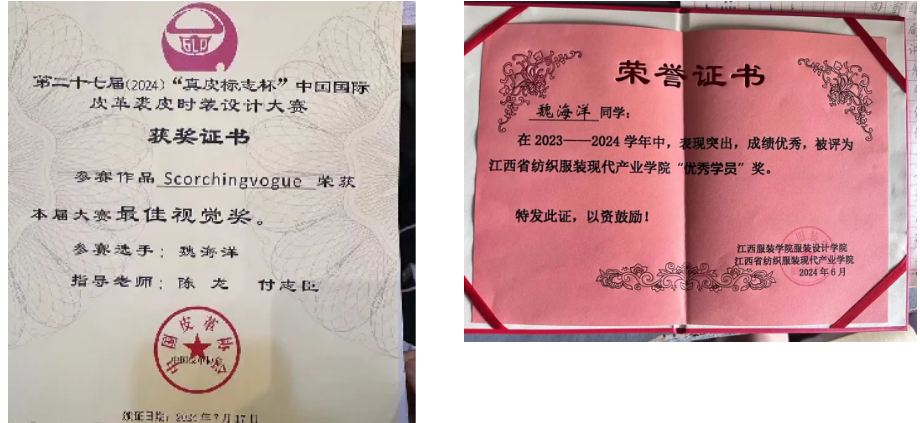 GLP
第二十七届(2024)“真皮标志杯”中国国际
皮革裘皮时装设计大赛
获奖证书
参赛作品 Scorchingvogue 荣获
本届大赛最佳视觉奖。
参赛选手：魏海洋
指导老师：陈 龙 付志臣
中国皮革协会
颁证日期：2024年7月17日
荣誉证书
魏海洋 同学：
在 2023——2024 学年中，表现突出，成绩优秀，被评为
江西省纺织服装现代产业学院“优秀学员”奖。
特发此证，以资鼓励！
江西服装学院服装设计学院
江西省纺织服装现代产业学院
2024年6月